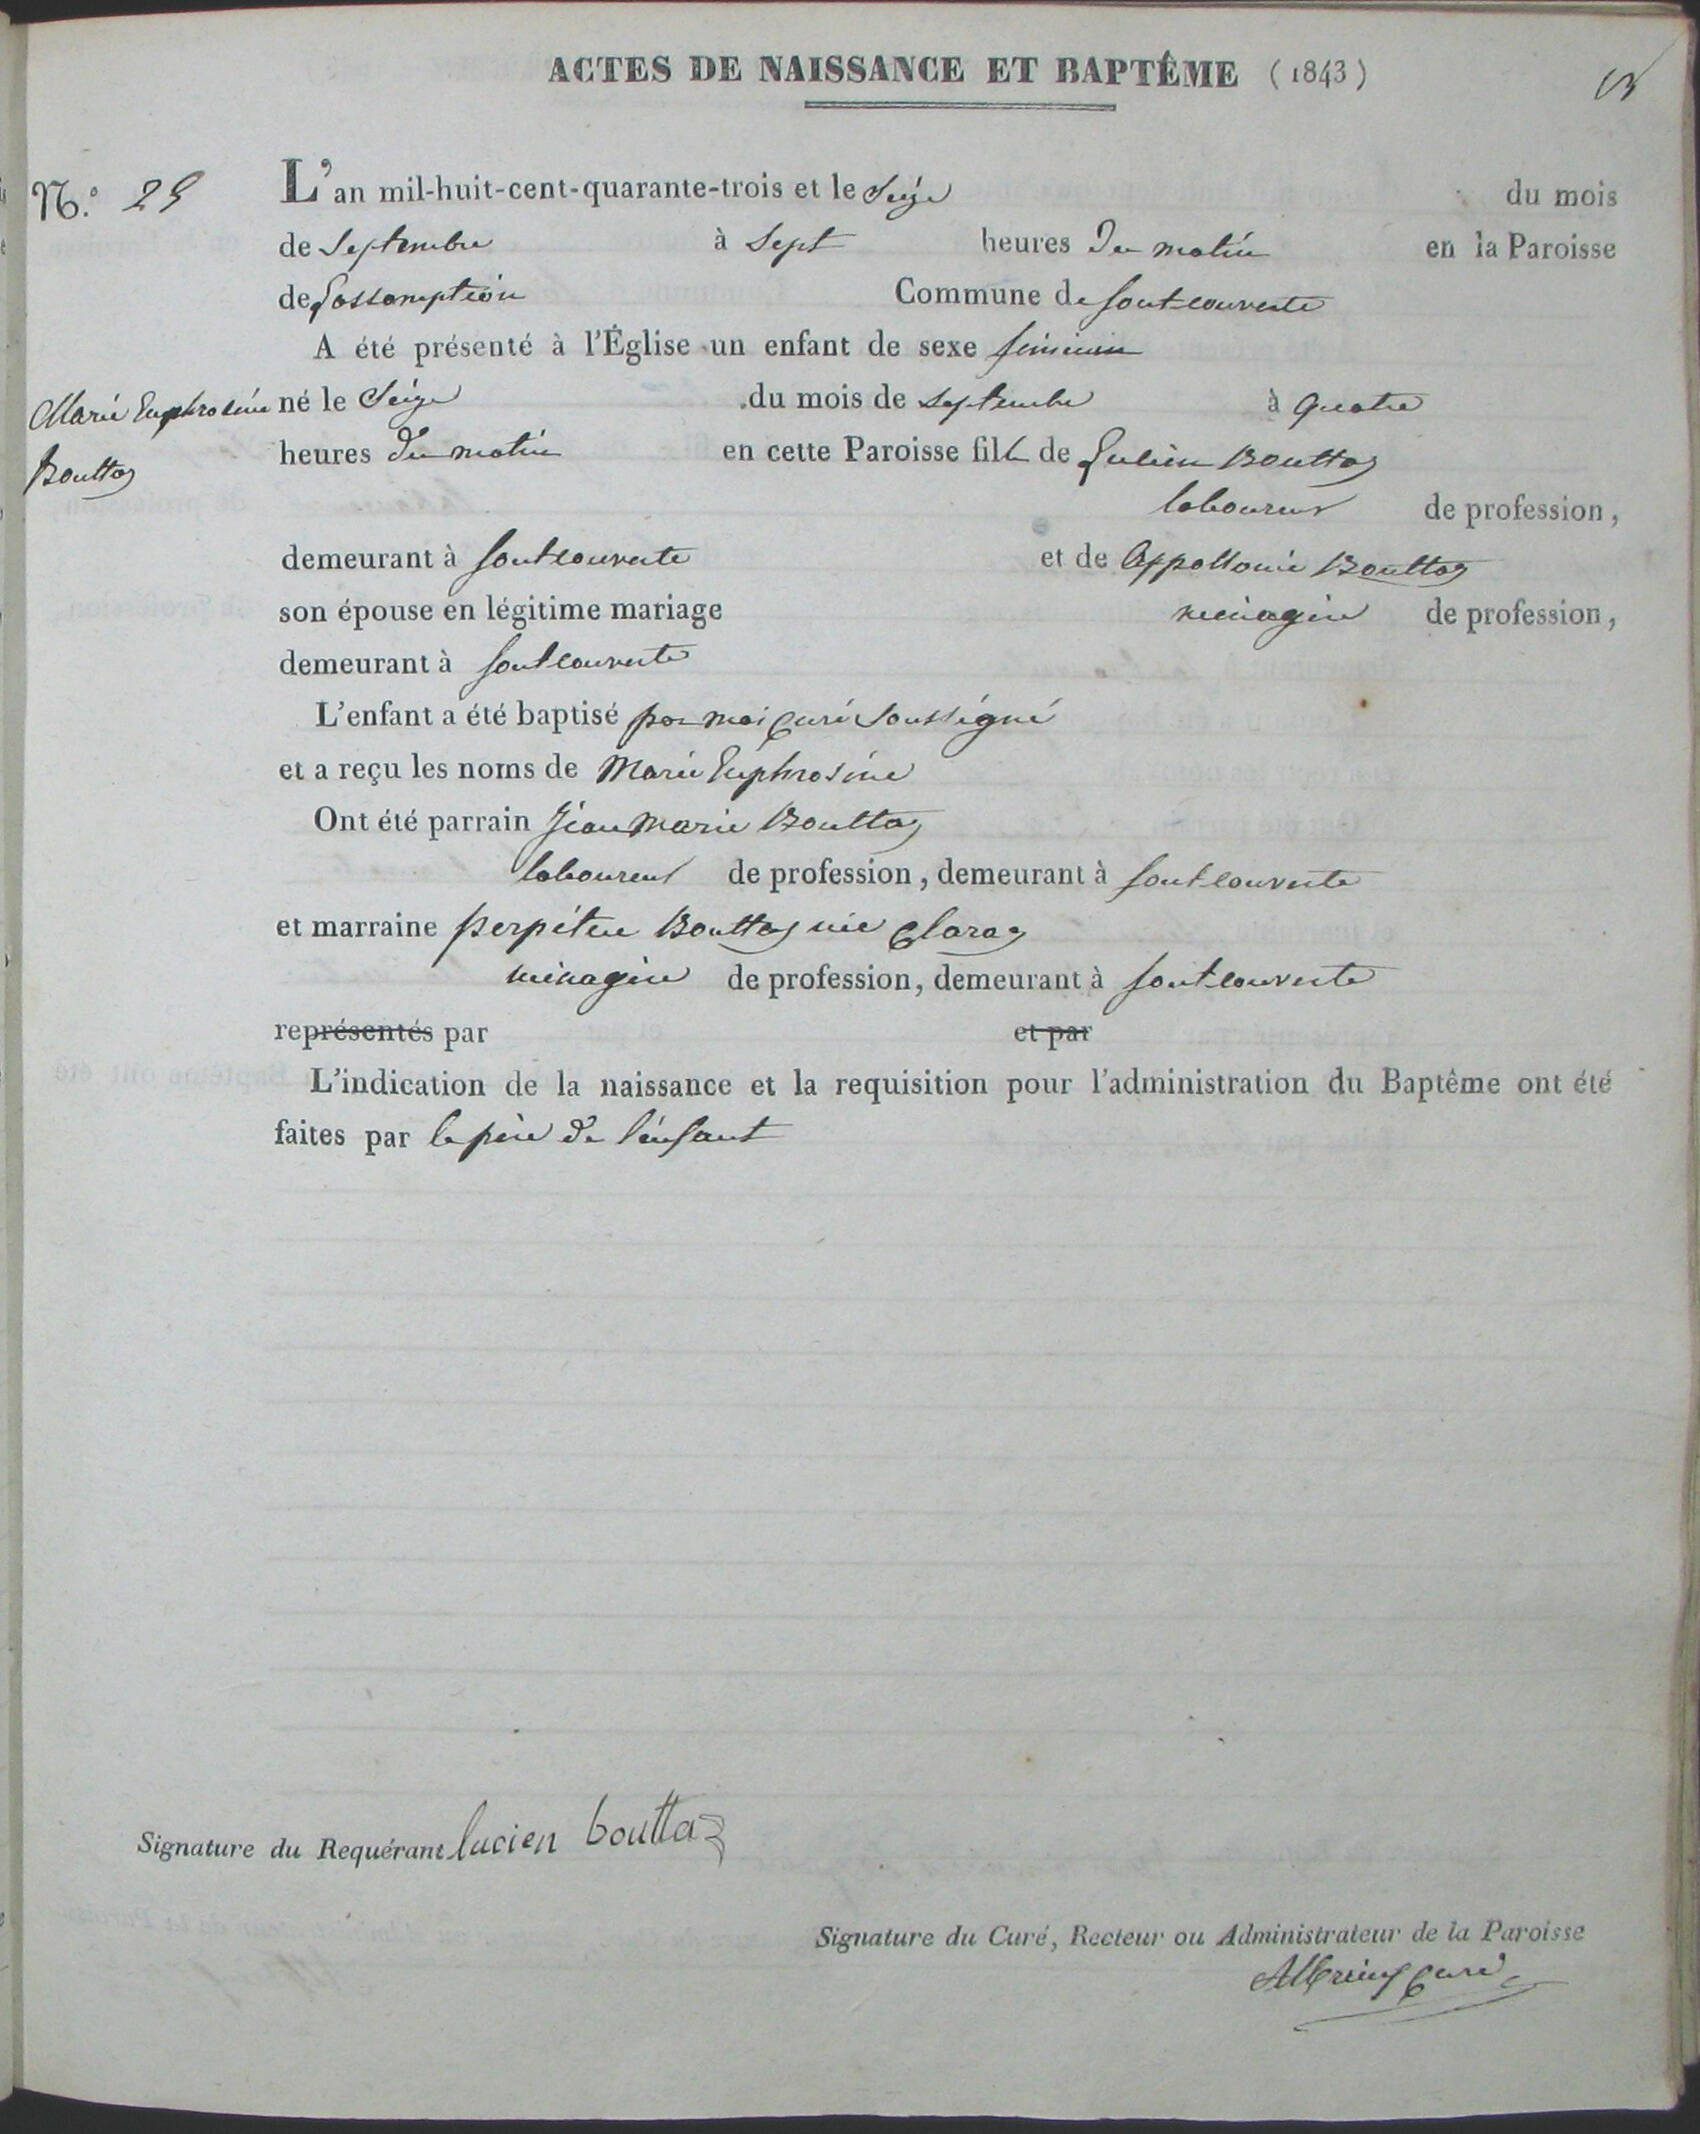 ACTES DE NAISSANCE ET BAPTÊME (1843)
N.º 25 L'an mil-huit-cent-quarante-trois et le Seize du mois
de Septembre à Sept heures Du matin en la Paroisse
de Lassomption Commune de fontcouverte
A été présenté à l'Église un enfant de sexe féminin
Marie Euphrosine né le Seize du mois de Septembre à quatre
Bouttaz heures du matin en cette Paroisse fille de Lucien Bouttaz
laboureur de profession,
demeurant à fontcouverte et de Appollonie Bouttaz
son épouse en légitime mariage ménagère de profession,
demeurant à fontcouverte
L'enfant a été baptisé par moi Curé Soussigné
et a reçu les noms de Marie Euphrosine
Ont été parrain Jean Marie Bouttaz
laboureur de profession, demeurant à fontcouverte
et marraine perpétue Bouttaz née Claraz
ménagère de profession, demeurant à fontcouverte
représentés par et par
L'indication de la naissance et la requisition pour l'administration du Baptême ont été
faites par le père de l'enfant
Signature du Requérant lucien bouttaz
Signature du Curé, Recteur ou Administrateur de la Paroisse
curé